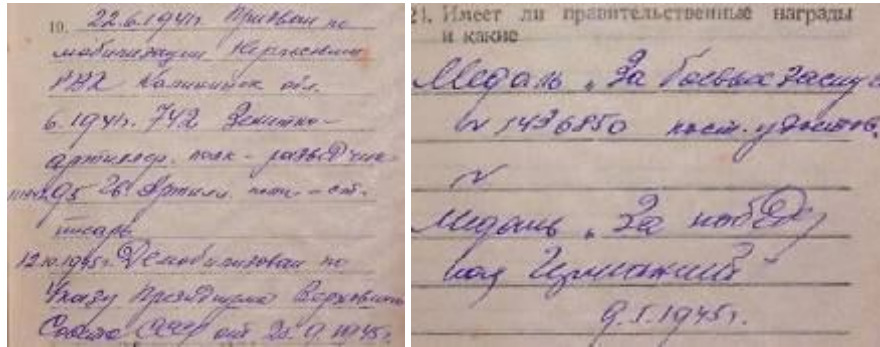 19. 22.6.1941г. Призван по
мобилизации
РВК Калининск обл.
6.1941г. 742 Зенитно-
артиллер. полк - разведчик
95 Гв. Артил. полк - ст.
писарь
12.10.1945г. Демобилизован по
Указу Президиума Верховного
Совета СССР от 25.9.1945г.
21. Имеет ли правительственные награды
и какие
Медаль „За боевые заслуг
№ 1436850 удостов.
№
Медаль „За победу
над Германией"
9.5.1945г.